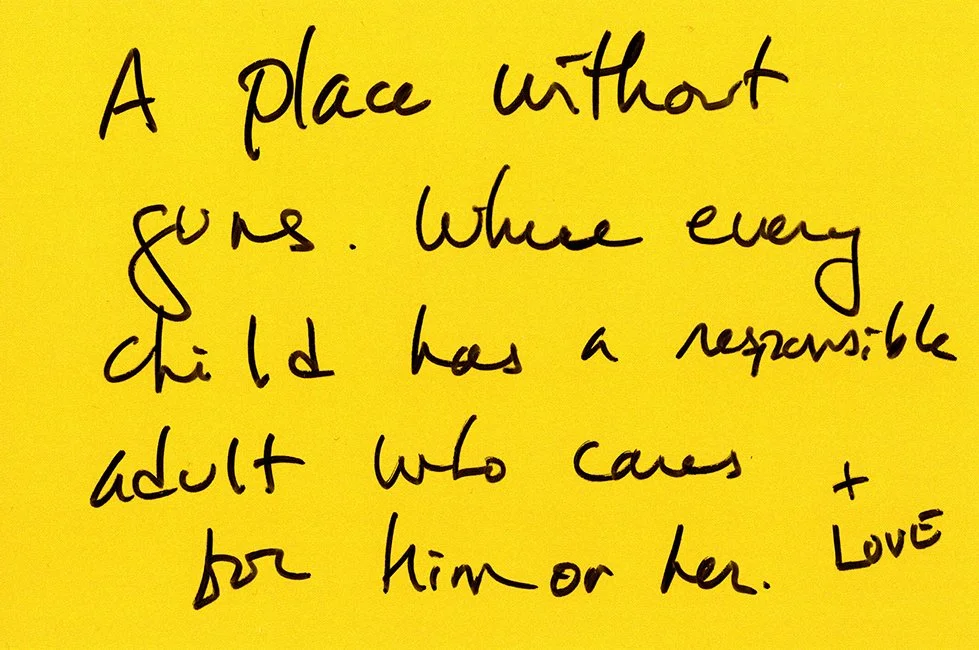 A place without
guns. Where every
child has a responsible
adult who cares
+
LOVE
for him or her.